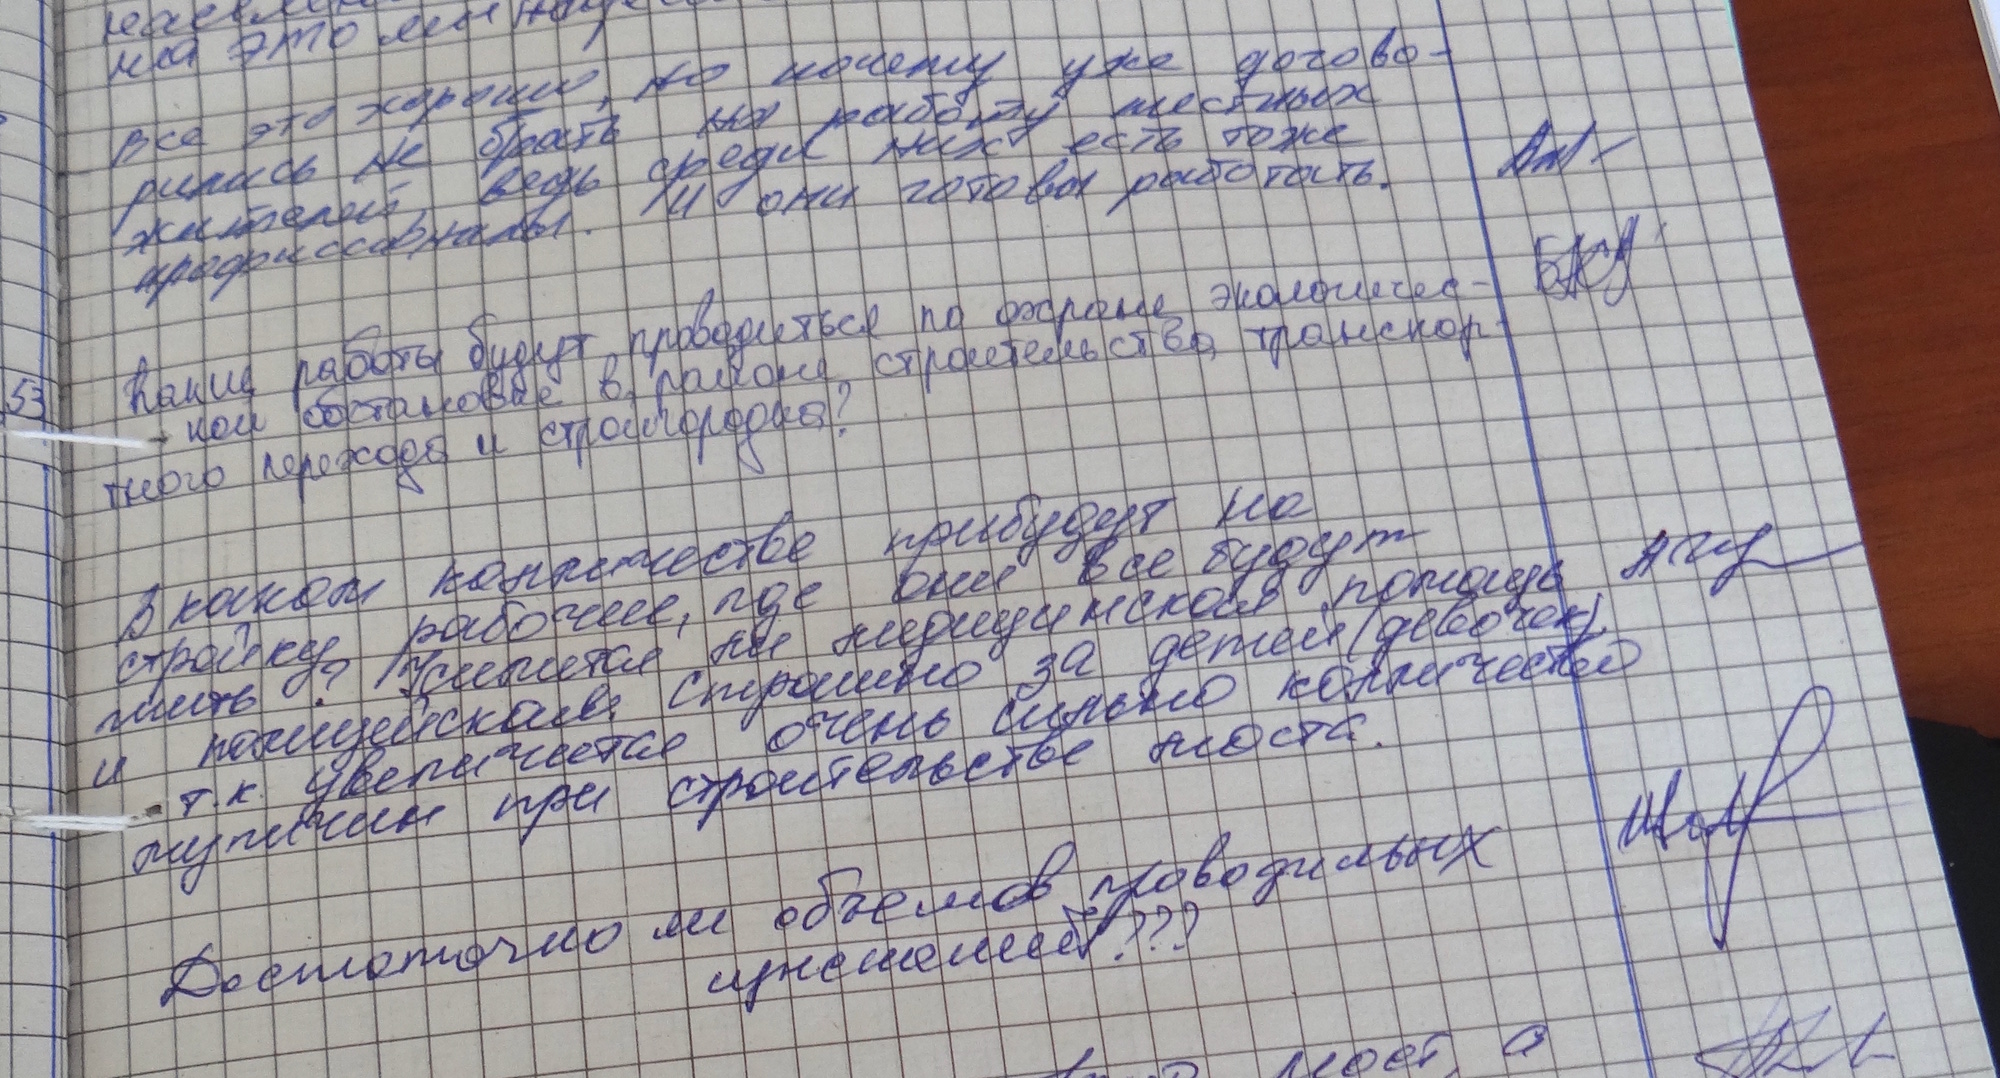 на это мы
Все это хорошо, но почему уже догово-
рились не брать на работу местных
жителей, ведь среди них есть тоже
профиссианалы. И они готовы работать.
Какие работы будут проводиться по охране экологичес-
кой обстановке в районе строительства транспор-
тного перехода и стройгородка?
53
В каком колличестве прибудут на
стройку рабочие, где они все будут
жить? Усилится ли медицинская помощь
и полицейская. Страшно за детей (девочек),
т.к. увеличется очень сильно колличество
мужчин при строительстве моста.
Достаточно ли объемов проводимых
мост, а